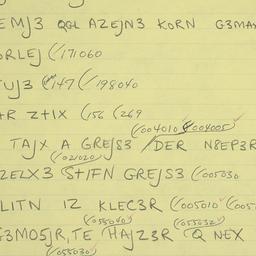 EMJ3 QGL AZEJN3 KORN G3MAS
ORLEJ (/171060
TUJ3 (/147 (/198040
+R Z+IX (156 (269
(/004010 (/004005
TAJX A GREJS3 /DER N8EP3R
(/021020
ZELX3 S+IFN GREJS3 (/005030
LITN IZ KLEC3R (/005010 (/005
(/055040 (/055032
G3MO5JR, TE HAJZ3R Q NEX
(/055030